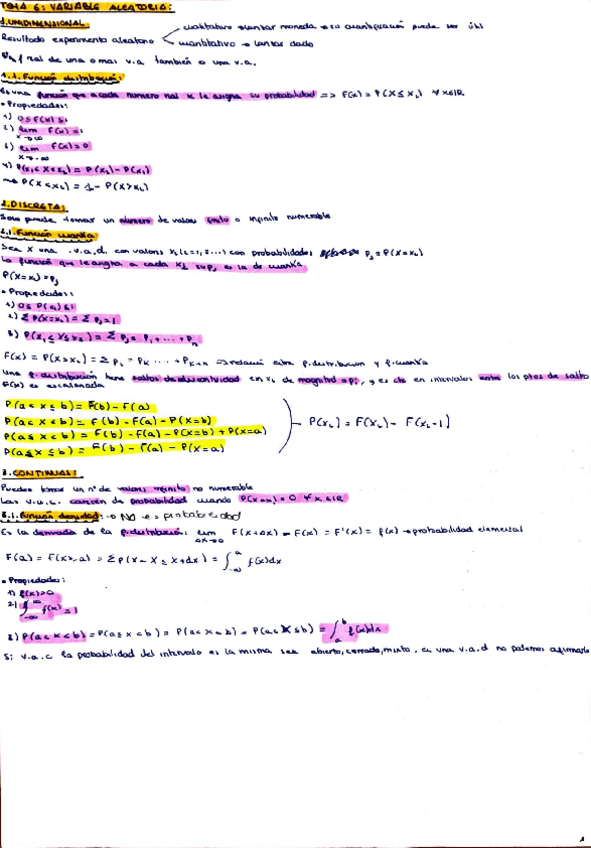 TEMA 6: VARIABLE ALEATORIA:
1. UNIDIMENSIONAL
cualitativo → lanzar moneda → su cuantificación puede ser útil
Resultado experimento aleatorio
cuantitativo → lanzar dado
Una f real de una o mas v.a también es una v.a.
1.1. Función distribución:
Es una función que a cada numero real x le asigna su probabilidad => F(x) = P(X ≤ x) ∀ x∈IR
• Propiedades:
1) 0 ≤ F(x) ≤ 1
2) lim F(x) = 1
x→∞
3) lim F(x) = 0
x→-∞
4) P(x₁ < X ≤ x₂) = P(x₂) - P(x₁)
→ P(X ≤ x) = 1 - P(X > x)
2. DISCRETA:
Solo puede tomar un número de valores finito o infinito numerable
2.1. Función cuantía
Sea X una v.a.d. con valores xᵢ (i=1,2...) con probabilidades pⱼ = P(X = xᵢ)
La función que le asigna a cada xᵢ su pⱼ es la de cuantía
P(X=xᵢ) = pⱼ
• Propiedades:
1) 0 ≤ P(xᵢ) ≤ 1
2) Σ P(X=xᵢ) = Σ pⱼ = 1
3) P(x₁ ≤ X ≤ x₂) = Σ pⱼ = p₁ + ... + pₙ
→ relación entre f. distribucion y f. cuantía
Una f. distribución tiene saltos de discontinuidad en xᵢ de magnitud = pᵢ, y es cte en intervalos entre los ptos de salto
F(x) es escalonada
P(a < x ≤ b) = F(b) - F(a)
P(a < x < b) = F(b) - F(a) - P(x=b)
P(xᵢ) = F(xᵢ) - F(xᵢ-1)
P(a ≤ x < b) = F(b) - F(a) - P(x=b) + P(x=a)
P(a ≤ x ≤ b) = F(b) - F(a) - P(x=a)
3. CONTINUAS:
Pueden tomar un nº de valores infinito no numerable
Las v.a.c. carecen de probabilidad cuando P(x=xᵢ) = 0 ∀ x∈IR
3.1. Función densidad: → NO es probabilidad
Es la derivada de la f. distribución: lim F(x+Δx) - F(x) = F'(x) = f(x) → probabilidad elemental
Δx→0
• Propiedades:
1) f(x) > 0
2) ∫ f(x) = 1
3) P(a < x < b) = P(a ≤ x < b) = P(a < x ≤ b) = P(a ≤ X ≤ b) = ∫ f(x)dx
Si v.a.c la probabilidad del intervalo es la misma sea abierto, cerrado, mixto, en una v.a.d no podemos afirmarlo
1